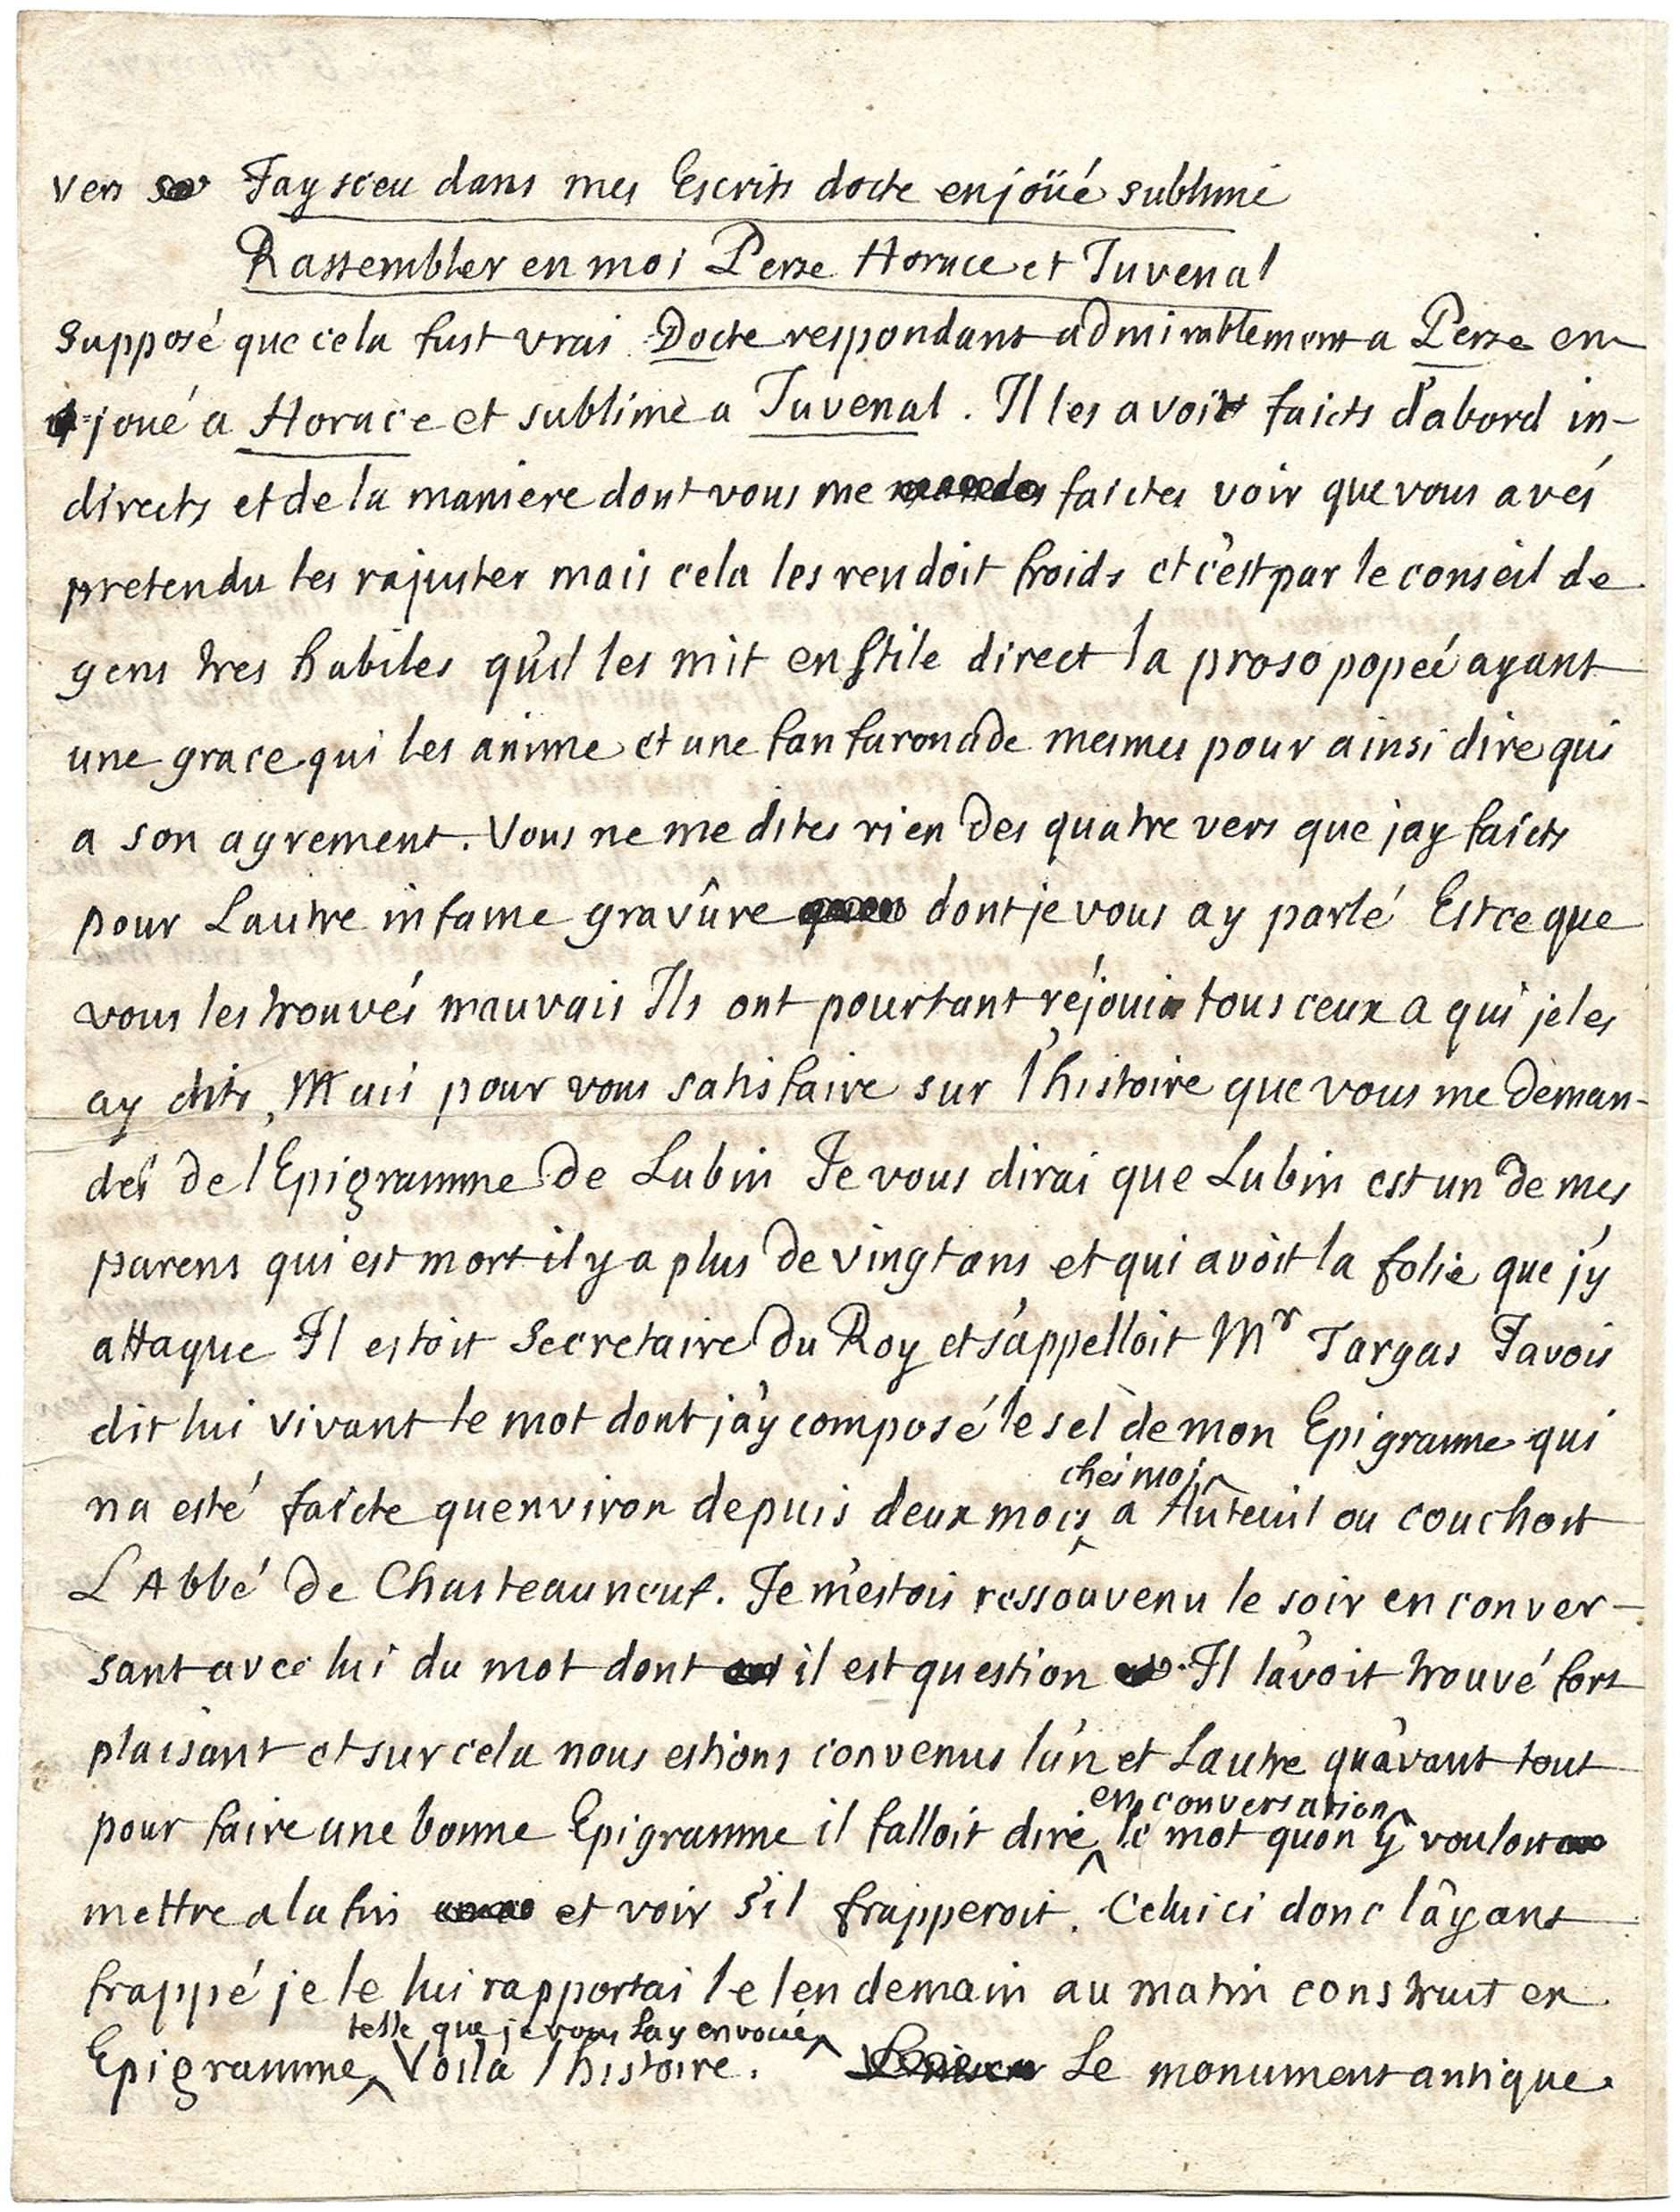 vers J'ay sceu dans mes Escrits docte enjoüé sublime
Rassembler en moi Perse Horace et Juvenal
Supposé que cela fust vrai Docte respondant admirablement a Perse en-
joué a Horace et sublime a Juvenal. Il les avoit faicts d'abord in-
directs et de la maniere dont vous me faictes voir que vous avés
pretendu les rajuster mais cela les rendoit froids et c'est par le conseil de
gens tres habiles qu'il les mit en stile direct la prosopopeé ayant
une grace qui les anime et une fanfaronade mesmes pour ainsi dire qui
a son agrement. Vous ne me dites rien des quatre vers que j'ay faicts
pour L'autre infame gravûre dont je vous ay parlé Est ce que
vous les trouvés mauvais Ils ont pourtant réjoui tous ceux a qui je les
ay dits, Mais pour vous satisfaire sur l'histoire que vous me deman-
dés de l'Epigramme de Lubin Je vous dirai que Lubin est un de mes
parens qui est mort il y a plus de vingt ans et qui avoit la folie que j'y
attaque Il estoit Secretaire du Roy et s'appelloit Mr Targas J'avois
dit lui vivant le mot dont j'ay composé le sel de mon Epigramme qui
na esté faicte qu'environ depuis deux mois
chés moi
a Auteuil ou couchoit
L'Abbé de Chasteauneuf. Je m'estois ressouvenu le soir en conver-
sant avec lui du mot dont il est question Il l'avoit trouvé fort
plaisant et sur cela nous estions convenus l'un et L'autre qu'avant tout
pour faire une bonne Epigramme il falloit dire
en conversation
le mot quon y vouloit
mettre a la fin et voir s'il frapperoit. Celui ci donc l'ayant
frappé je le lui rapportai le lendemain au matin construit en
Epigramme
telle que je vous l'ay envoiée
Voila l'histoire. Le monument antique